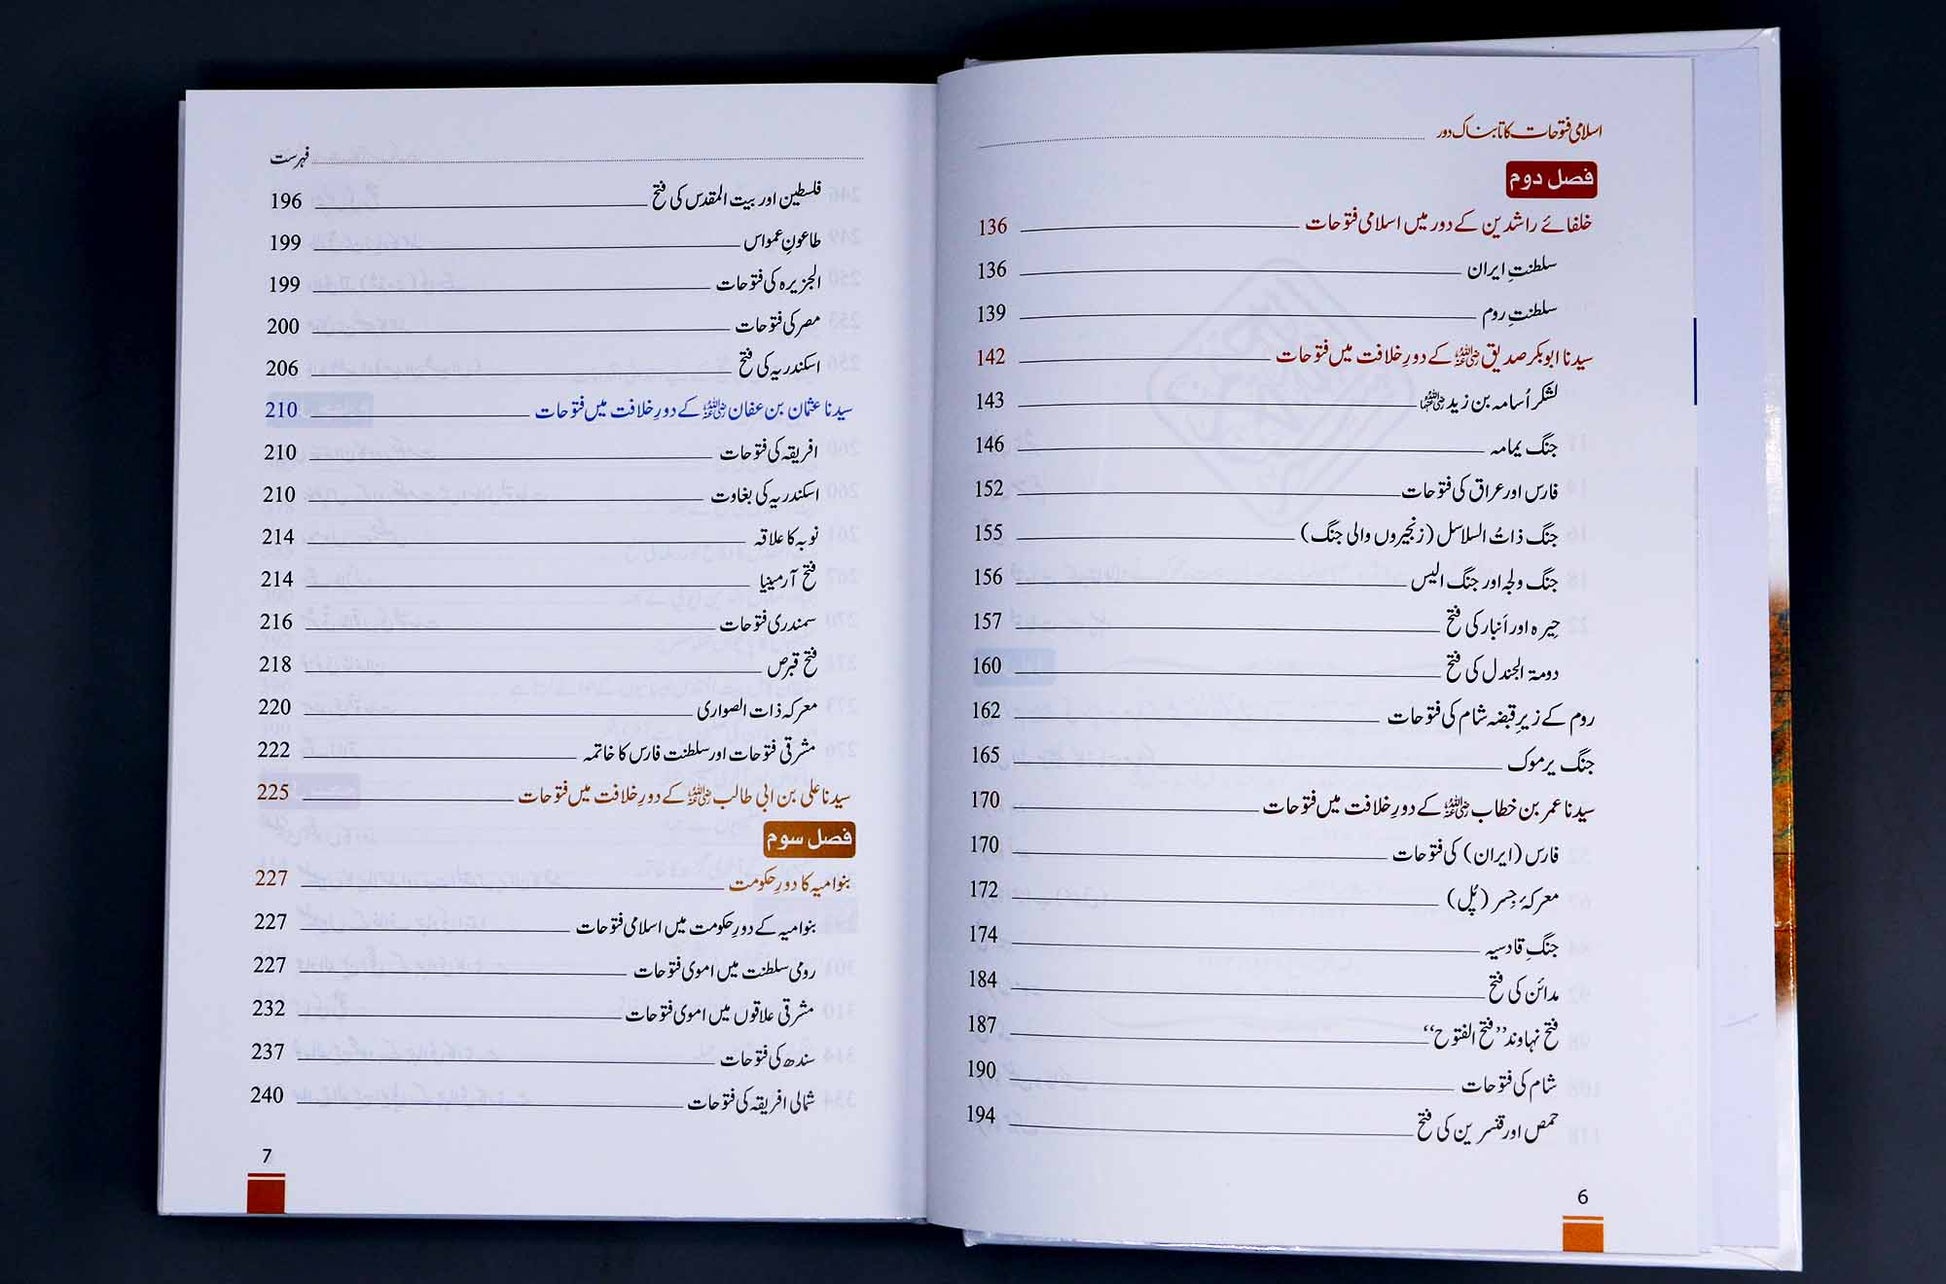 اسلامی فتوحات کا تابناک دور
فصل دوم
خلفائے راشدین کے دور میں اسلامی فتوحات 136
سلطنتِ ایران 136
سلطنتِ روم 139
سیدنا ابوبکر صدیق رضی اللہ عنہ کے دورِ خلافت میں فتوحات 142
لشکر اُسامہ بن زید رضی اللہ عنہما 143
جنگ یمامہ 146
فارس اور عراق کی فتوحات 152
جنگ ذاتُ السلاسل (زنجیروں والی جنگ) 155
جنگ ولجہ اور جنگ الیس 156
حِیرہ اور اَنبار کی فتح 157
دومۃ الجندل کی فتح 160
روم کے زیرِ قبضہ شام کی فتوحات 162
جنگ یرموک 165
سیدنا عمر بن خطاب رضی اللہ عنہ کے دورِ خلافت میں فتوحات 170
فارس (ایران) کی فتوحات 170
معرکۂ جِسر (پُل) 172
جنگِ قادسیہ 174
مدائن کی فتح 184
فتح نہاوند ’’فتح الفتوح‘‘ 187
شام کی فتوحات 190
حمص اور قنسرین کی فتح 194
6
فہرست
فلسطین اور بیت المقدس کی فتح 196
طاعونِ عمواس 199
الجزیرہ کی فتوحات 199
مصر کی فتوحات 200
اسکندریہ کی فتح 206
سیدنا عثمان بن عفان رضی اللہ عنہ کے دورِ خلافت میں فتوحات 210
افریقہ کی فتوحات 210
اسکندریہ کی بغاوت 210
نوبہ کا علاقہ 214
فتح آرمینیا 214
سمندری فتوحات 216
فتح قبرص 218
معرکہ ذات الصواری 220
مشرقی فتوحات اور سلطنت فارس کا خاتمہ 222
سیدنا علی بن ابی طالب رضی اللہ عنہ کے دورِ خلافت میں فتوحات 225
فصل سوم
بنوامیہ کا دورِ حکومت 227
بنوامیہ کے دورِ حکومت میں اسلامی فتوحات 227
رومی سلطنت میں اموی فتوحات 227
مشرقی علاقوں میں اموی فتوحات 232
سندھ کی فتوحات 237
شمالی افریقہ کی فتوحات 240
7